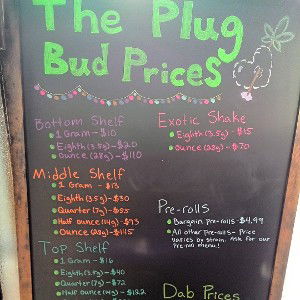 The Plug
Bud Prices
Bottom Shelf
1 Gram - $10
Eighth (3.5g) - $20
Ounce (28g) - $110
Middle Shelf
1 Gram - $13
Eighth (3.5g) - $30
Quarter (7g) - $55
Half ounce (14g) - $73
Ounce (28g) - $145
Top Shelf
1 Gram - $16
Eighth (3.5g) - $40
Quarter (7g) - $72
Half ounce (14g) - $132
Exotic Shake
Eighth (3.5g) - $15
Ounce (28g) - $70
Pre-rolls
Bargain Pre-rolls $4.99
All other Pre-rolls - Price
varies by strain. Ask for our
Pre-roll menu!
Dab Prices